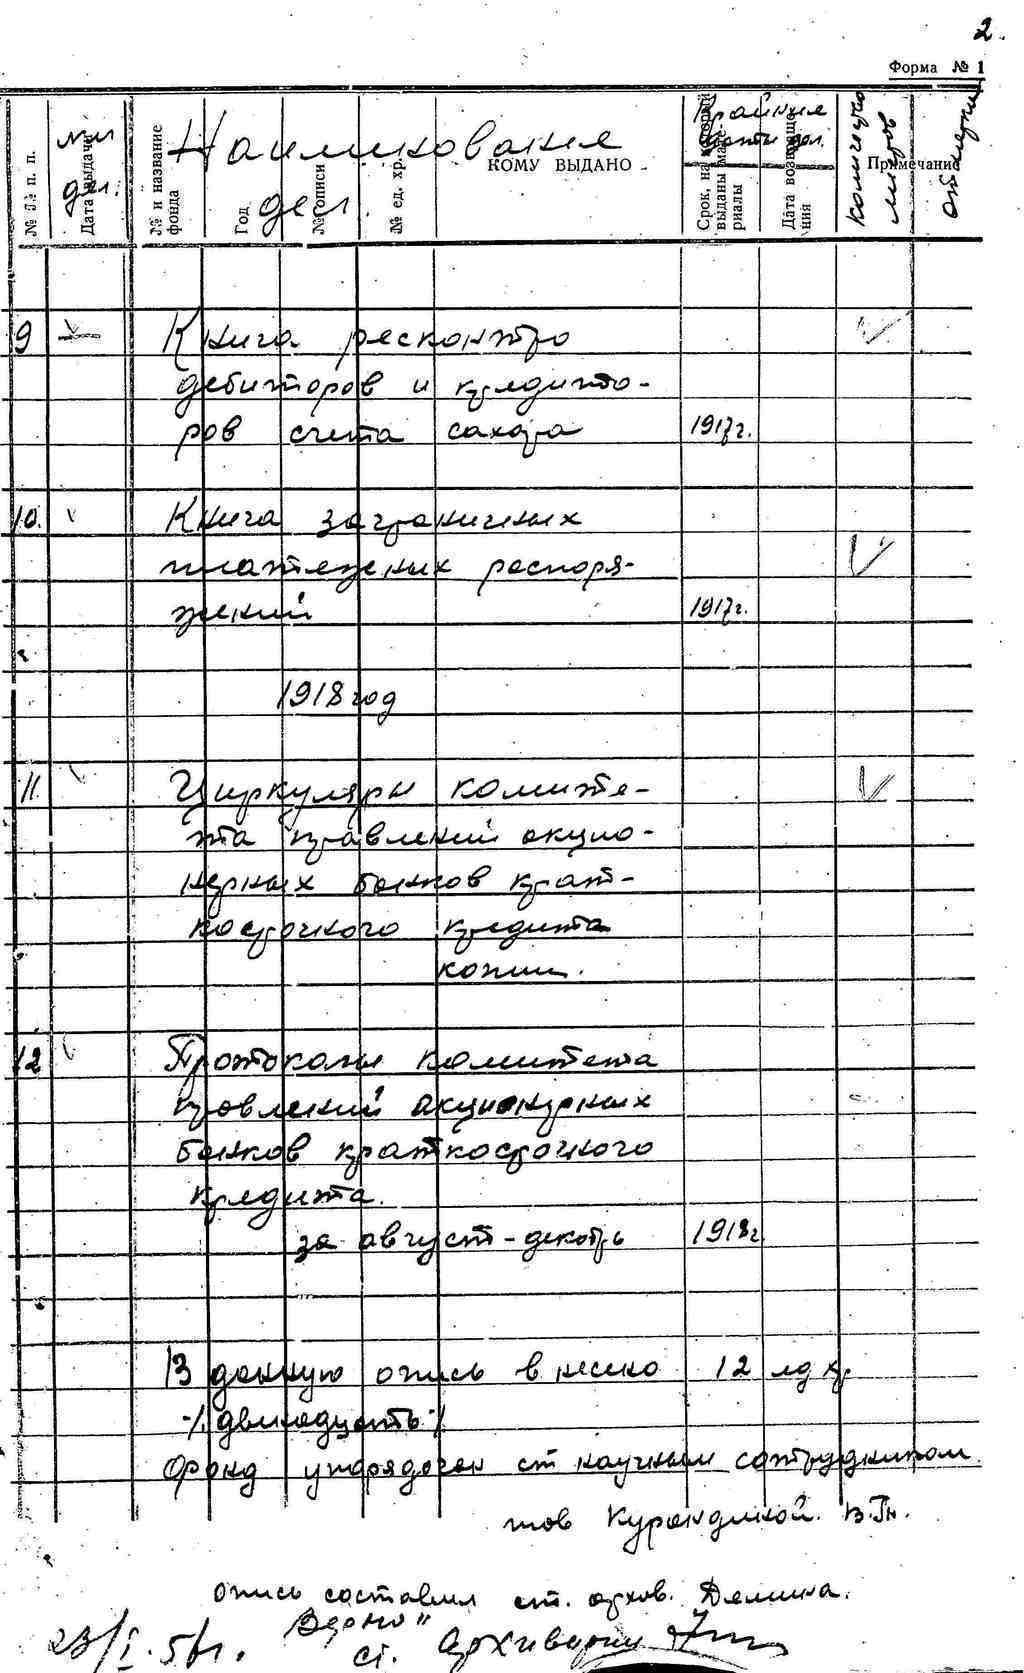 2.
Форма № 1
№№ п. п.
Дата выдачи
№ дел.
№ и название фонда
Год
№ описи
№ ед. хр.
КОМУ ВЫДАНО
Наименования
дел.
Срок, на который выданы материалы
Дата возвращения
Крайние
даты дел.
Примечание
количество
листов
отметки
9
Книга ресконтро
дебиторов и кредито-
ров счета сахара 1917г.
10. Книга заграничных
платежных распоря-
жений 1917г.
1918 год
11 Циркуляры комите-
та правлений акцио-
нерных банков крат-
косрочного кредита
копии.
12 Протоколы комитета
правлений акционерных
банков краткосрочного
кредита.
за август-декабрь 1918г
В данную опись внесено 12 ед хр
-/. двенадцать -/
Фонд упорядочен ст научным сотрудником
тов Курандиной. В.Гн.
опись составил ст. архив. Демина.
Верно"
23/I.51г. ст. Архивариус